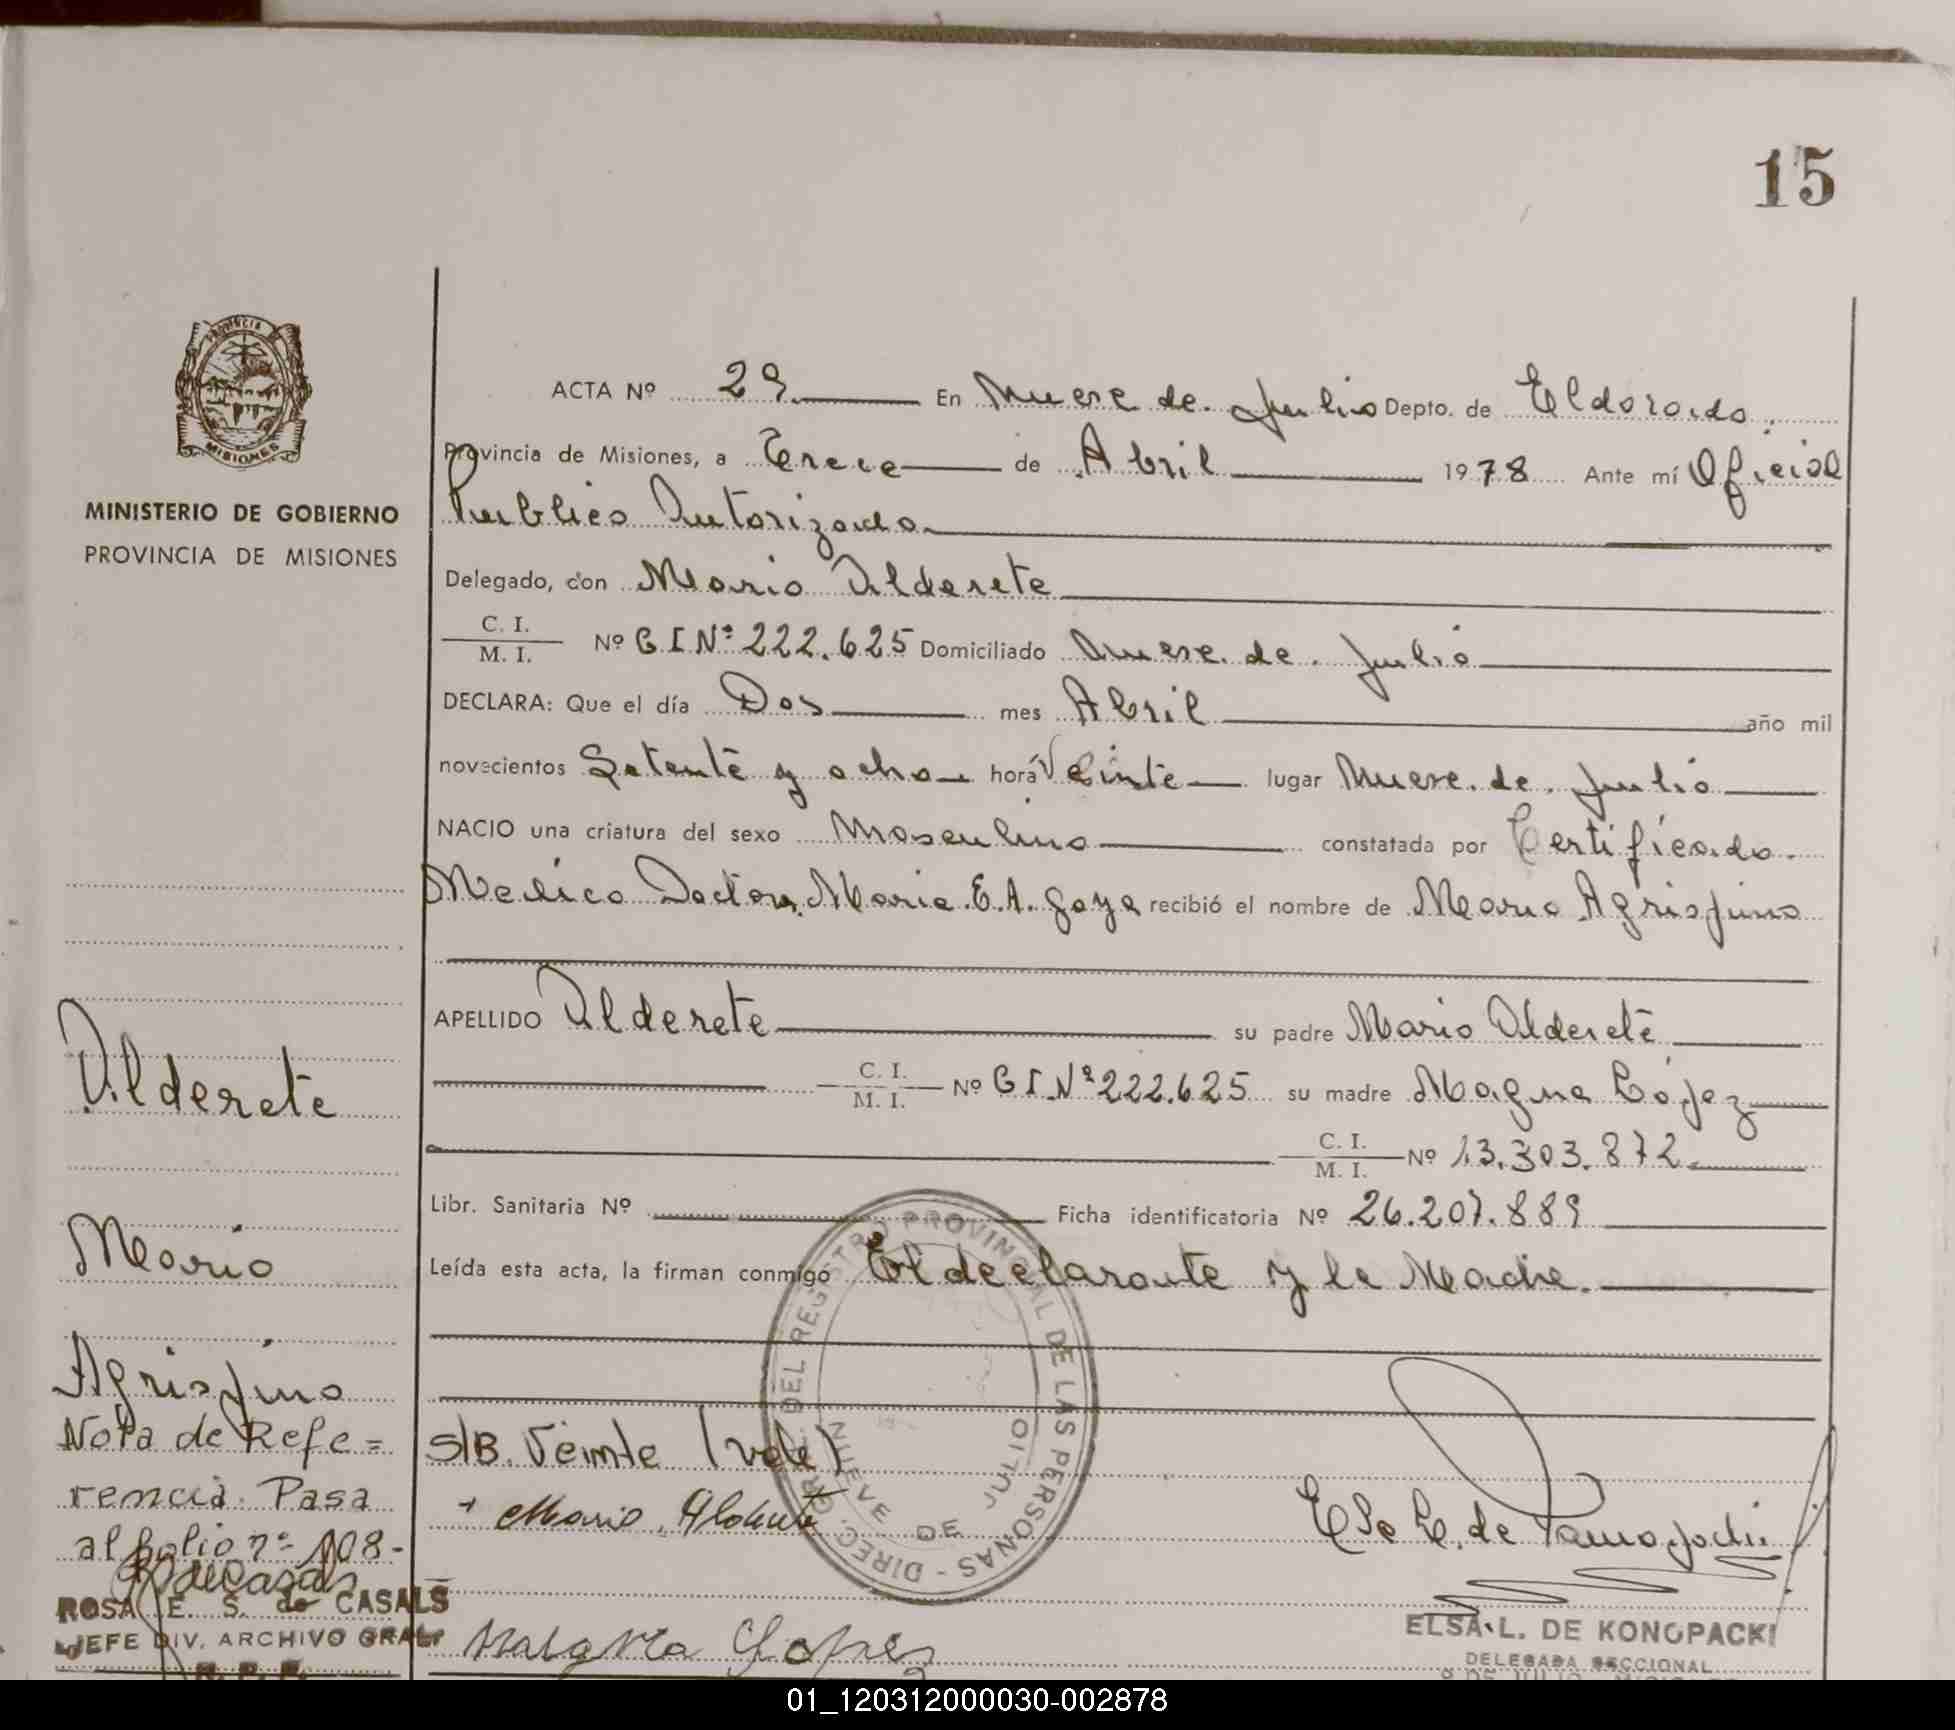 15
PROVINCIA
MISIONES
MINISTERIO DE GOBIERNO
PROVINCIA DE MISIONES
ACTA Nº 29 En Nueve de Julio Depto. de Eldorado
Provincia de Misiones, a Trece de Abril 1978 Ante mí Oficial
Publico Autorizado
Delegado, con Mario Alderete
C. I.
M. I. Nº C I Nº 222.625 Domiciliado Nueve de Julio
DECLARA: Que el día Dos mes Abril año mil
novecientos Setenta y ocho hora Veinte lugar Nueve de Julio
NACIO una criatura del sexo Masculino constatada por Certificado
Medico Doctora Maria E. A. Goya recibió el nombre de Mario Agrispino
APELLIDO Alderete su padre Mario Alderete
C. I.
M. I. Nº C I Nº 222.625 su madre Magna López
C. I.
M. I. Nº 13.303.872
Libr. Sanitaria Nº Ficha identificatoria Nº 26.207.889
Leída esta acta, la firman conmigo El declarante y la Madre.
S/B. Veinte (vale)
Mario Alderete
Elsa L. de
ELSA L. DE KONOPACKI
DELEGADA SECCIONAL
9 DE JULIO
DIREC. GRAL. DEL REGISTRO PROVINCIAL DE LAS PERSONAS
NUEVE DE JULIO
Alderete
Mario
Agrispino
Nota de Refe=
rencia. Pasa
al folio nº 108-
ROSA E. S. de CASALS
JEFE DIV. ARCHIVO GRAL.
R. P. P.
Lopez
01_120312000030-002878